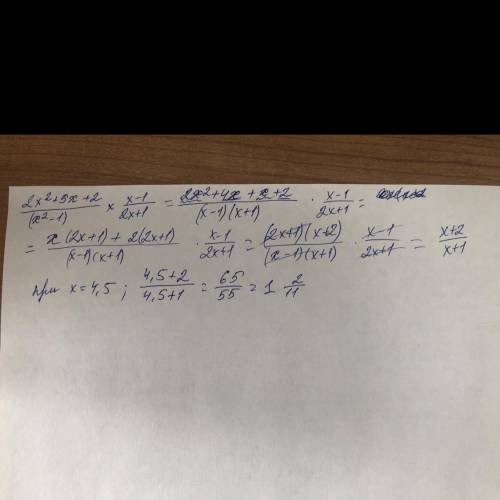 (2x²+5x+2)/(x²-1) × (x-1)/(2x+1) = (2x²+4x+x+2)/((x-1)(x+1)) · (x-1)/(2x+1) =
= (x(2x+1)+2(2x+1))/((x-1)(x+1)) · (x-1)/(2x+1) = ((2x+1)(x+2))/((x-1)(x+1)) · (x-1)/(2x+1) = (x+2)/(x+1)
при x=4,5; (4,5+2)/(4,5+1) = 65/55 = 1 2/11